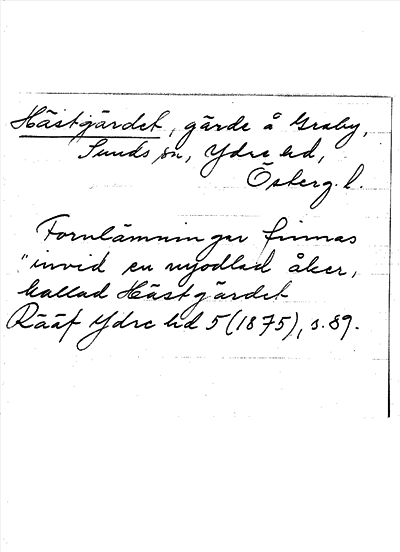 Hästgärdet, gärde å Graby,
Sunds sn, Ydre hd,
Österg. l.
Fornlämningar finnas
"invid en nyodlad åker,
kallad Hästgärdet
Rääf Ydre hd 5 (1875), s. 89.